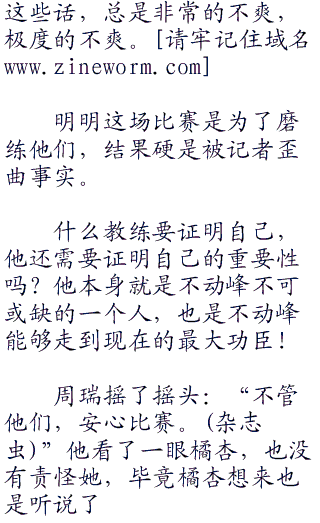 这些话，总是非常的不爽，
极度的不爽。[请牢记住域名
www.zineworm.com]
明明这场比赛是为了磨
练他们，结果硬是被记者歪
曲事实。
什么教练要证明自己，
他还需要证明自己的重要性
吗？他本身就是不动峰不可
或缺的一个人，也是不动峰
能够走到现在的最大功臣！
周瑞摇了摇头：“不管
他们，安心比赛。(杂志
虫)”他看了一眼橘杏，也没
有责怪她，毕竟橘杏想来也
是听说了